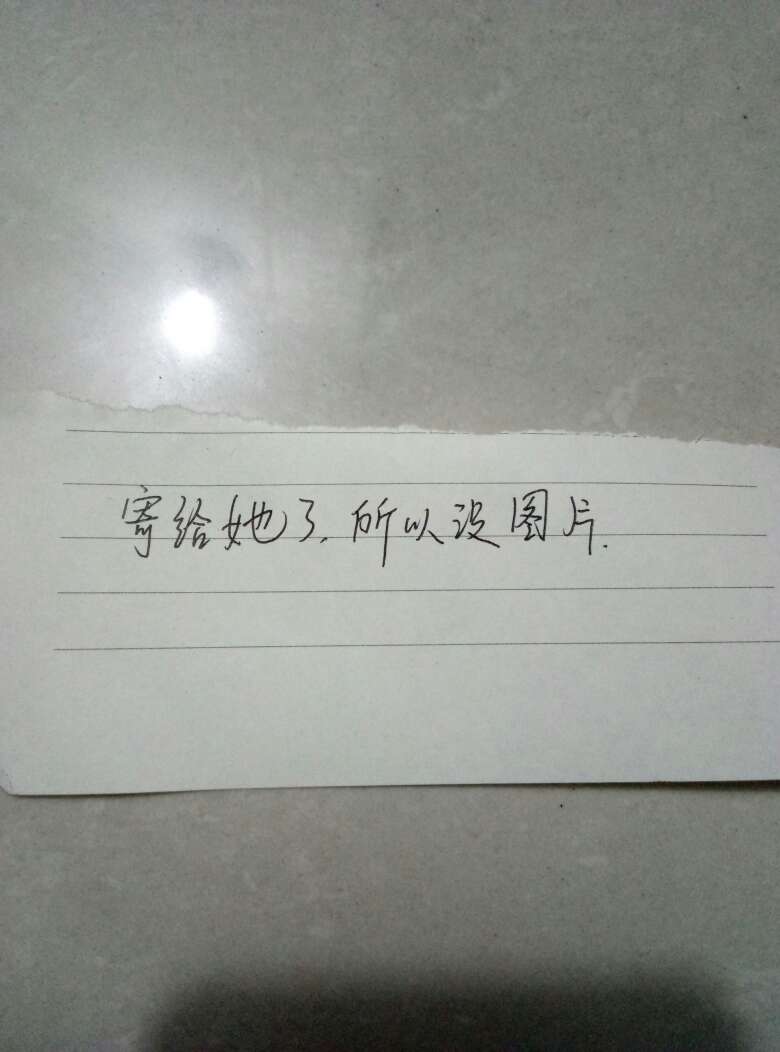 寄给她了,所以没图片.